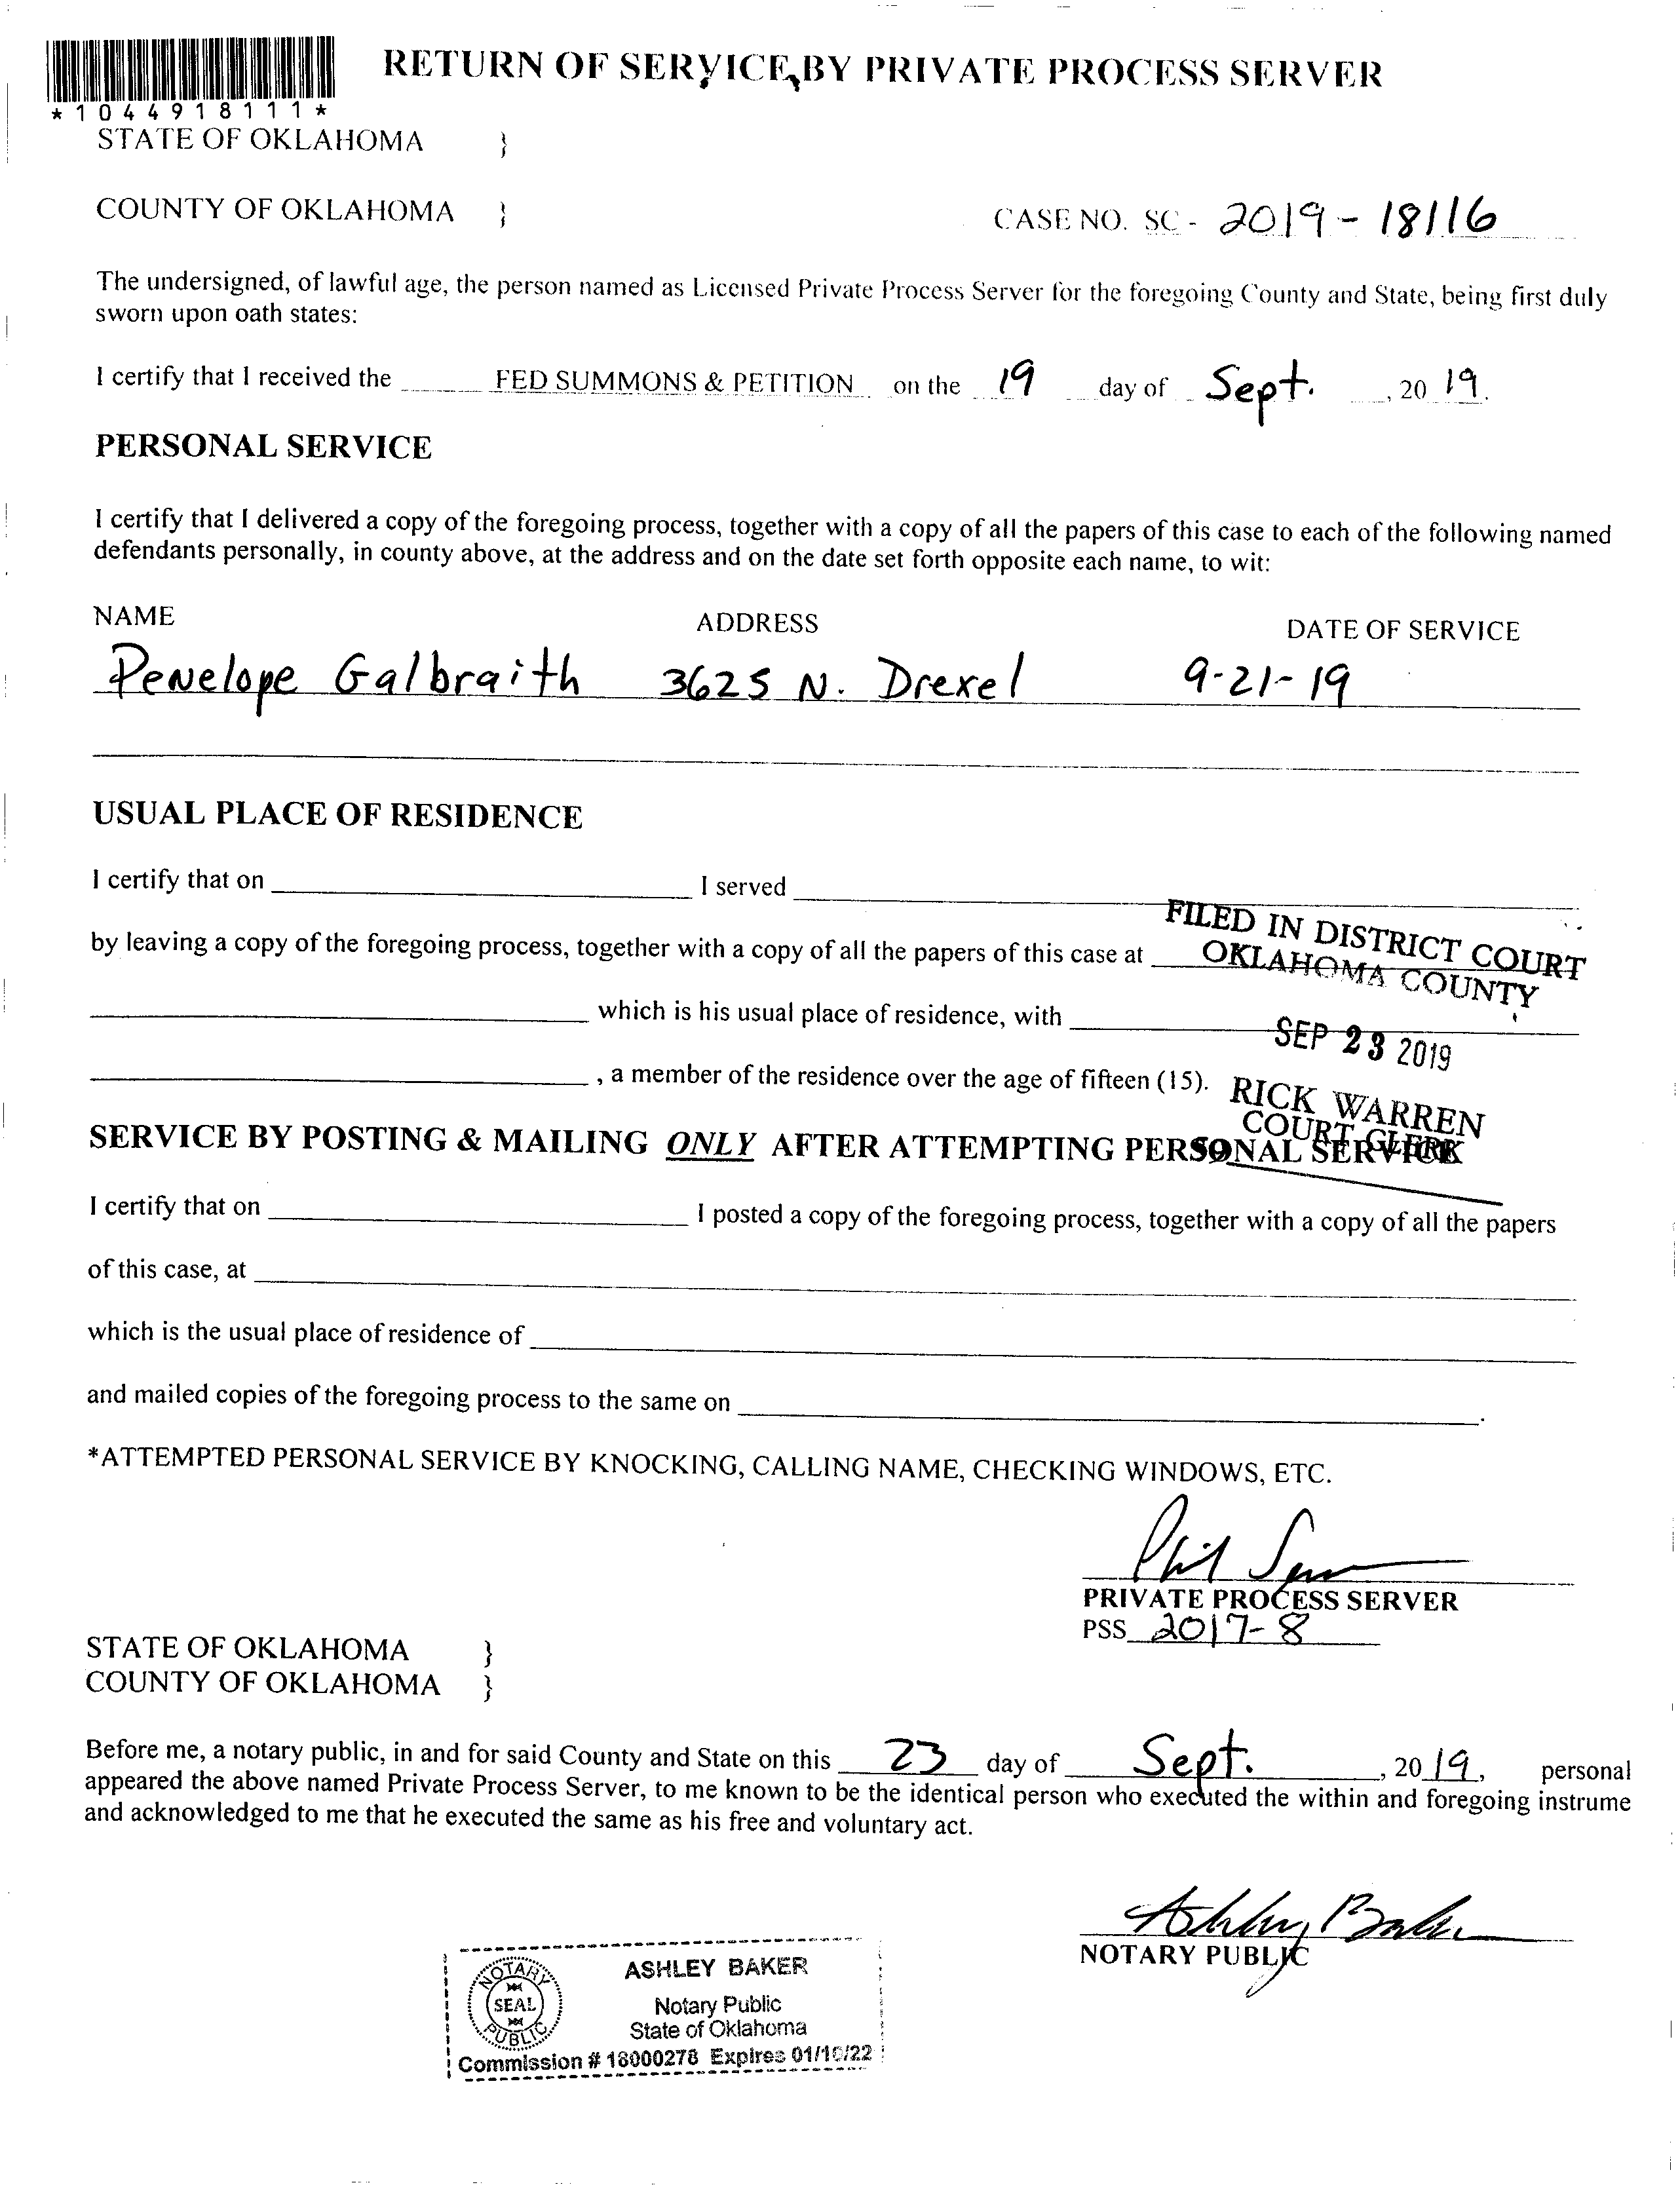 RETURN OF SERVICE BY PRIVATE PROCESS SERVER
*1044918111*
STATE OF OKLAHOMA }
COUNTY OF OKLAHOMA }
CASE NO. SC - 2019 - 18116
The undersigned, of lawful age, the person named as Licensed Private Process Server for the foregoing County and State, being first duly
sworn upon oath states:
I certify that I received the FED SUMMONS & PETITION on the 19 day of Sept. , 20 19.
PERSONAL SERVICE
I certify that I delivered a copy of the foregoing process, together with a copy of all the papers of this case to each of the following named
defendants personally, in county above, at the address and on the date set forth opposite each name, to wit:
NAME ADDRESS DATE OF SERVICE
Penelope Galbraith 3625 N. Drexel 9-21-19
USUAL PLACE OF RESIDENCE
I certify that on I served
FILED IN DISTRICT COURT
OKLAHOMA COUNTY
by leaving a copy of the foregoing process, together with a copy of all the papers of this case at
which is his usual place of residence, with
SEP 23 2019
, a member of the residence over the age of fifteen (15).
RICK WARREN
COURT CLERK
SERVICE BY POSTING & MAILING ONLY AFTER ATTEMPTING PERSONAL SERVICE
I certify that on I posted a copy of the foregoing process, together with a copy of all the papers
of this case, at
which is the usual place of residence of
and mailed copies of the foregoing process to the same on .
*ATTEMPTED PERSONAL SERVICE BY KNOCKING, CALLING NAME, CHECKING WINDOWS, ETC.
PRIVATE PROCESS SERVER
PSS 2017-8
STATE OF OKLAHOMA }
COUNTY OF OKLAHOMA }
Before me, a notary public, in and for said County and State on this 23 day of Sept. , 20 19, personal
appeared the above named Private Process Server, to me known to be the identical person who executed the within and foregoing instrume
and acknowledged to me that he executed the same as his free and voluntary act.
Ashley Baker
NOTARY PUBLIC
NOTARY
SEAL
PUBLIC
ASHLEY BAKER
Notary Public
State of Oklahoma
Commission # 18000278 Expires